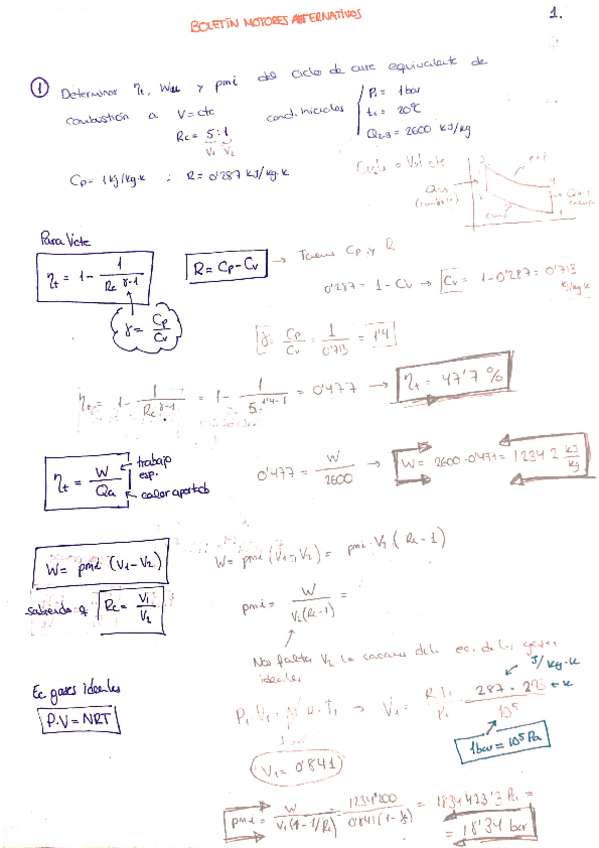 BOLETÍN MOTORES ALTERNATIVOS
1.
① Determinar ηt, Wútil y pmi del ciclo de aire equivalente de
combustión a V=cte cond. iniciales
P1 = 1bar
t1 = 20ºC
Q2-3 = 2600 KJ/kg
Rc = 5:1
V1 V2
Cp= 1Kj/kg·k ; R= 0'287 KJ/kg·K
Ciclo a Vol cte
Para Vcte
ηt = 1 - 1/Rc^γ-1
R = Cp - Cv → Tenemos Cp y R
0'287 = 1 - Cv → Cv = 1-0'287 = 0'713 KJ/kg·K
γ = Cp/Cv
γ = Cp/Cv = 1/0'713 = 1'4
ηt = 1 - 1/Rc^γ-1 = 1 - 1/5^1'4-1 = 0'477 → ηt = 47'7 %
ηt = W/Qa
trabajo esp.
calor aportado
0'477 = W/2600 → W = 2600·0'477 = 1234 2 KJ/kg
W = pmi (V1-V2)
W = pmi (V1-V2) = pmi·V2 (Rc-1)
sabiendo q Rc = V1/V2
pmi = W/V2(Rc-1) =
Nos falta V2 la sacamos de la ec. de los gases
ideales
Ec gases ideales
P·V=NRT
P1 V1 = N R·T1 → V1 = R T1/P1 = 287·293/10^5
J/kg·K
K
1bar = 10^5 Pa
V1 = 0'841
pmi = W/V1(1-1/Rc) = 1234'200/0'841(1-1/5) = 1834423'3 Pa =
= 18'34 bar